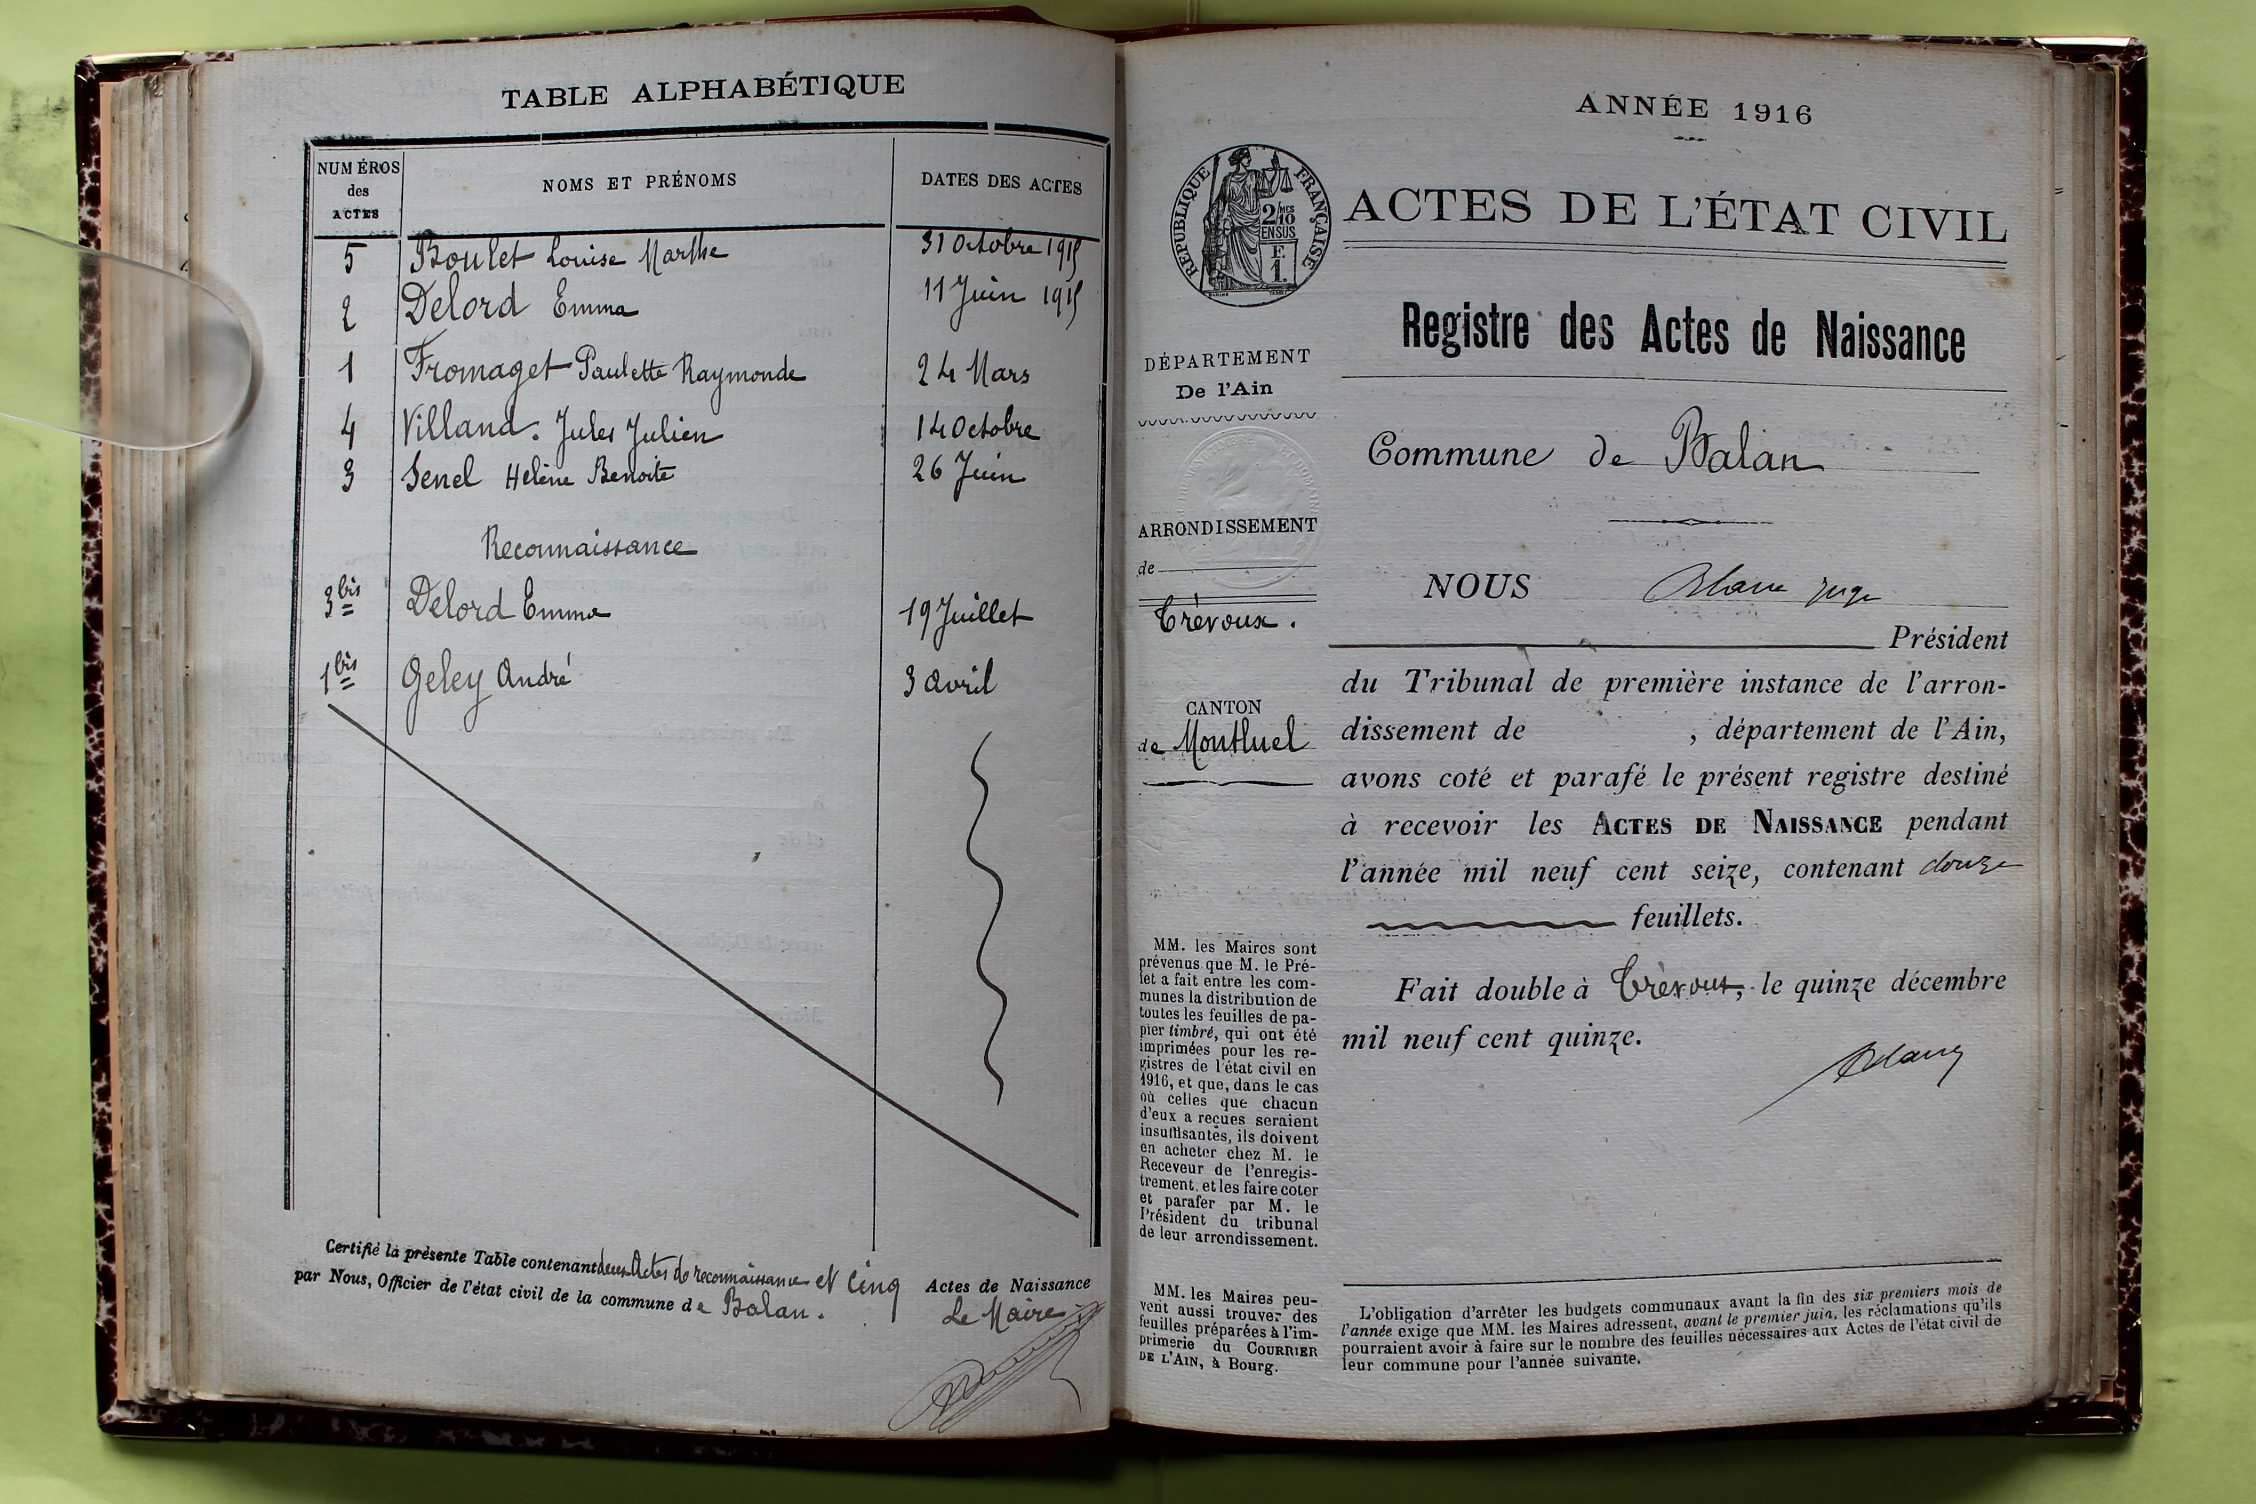 TABLE ALPHABÉTIQUE
NUMÉROS des ACTES NOMS ET PRÉNOMS DATES DES ACTES
5 Boulet Louise Marthe 31 Octobre 1915
2 Delord Emma 11 Juin 1915
1 Fromaget Paulette Raymonde 24 Mars
4 Villand. Jules Julien 14 Octobre
3 Senel Hélène Benoite 26 Juin
Reconnaissance
3 bis Delord Emma 19 Juillet
1 bis Geley André 3 avril
Certifié la présente Table contenant deux Actes de reconnaissance et Cinq Actes de Naissance
par Nous, Officier de l'état civil de la commune de Balan.
Le Maire
ANNÉE 1916
RÉPUBLIQUE FRANÇAISE
2/10 MES
EN SUS
F.
1.
ACTES DE L'ÉTAT CIVIL
Registre des Actes de Naissance
DÉPARTEMENT
De l'Ain
Commune de Balan
ARRONDISSEMENT
de
Trévoux.
CANTON
de Montluel
NOUS juge
Président
du Tribunal de première instance de l'arron-
dissement de , département de l'Ain,
avons coté et parafé le présent registre destiné
à recevoir les ACTES DE NAISSANCE pendant
l'année mil neuf cent seize, contenant douze
feuillets.
Fait double à Trévoux, le quinze décembre
mil neuf cent quinze.
MM. les Maires sont
prévenus que M. le Pré-
fet a fait entre les com-
munes la distribution de
toutes les feuilles de pa-
pier timbré, qui ont été
imprimées pour les re-
gistres de l'état civil en
1916, et que, dans le cas
où celles que chacun
d'eux a reçues seraient
insuffisantes, ils doivent
en acheter chez M. le
Receveur de l'enregis-
trement, et les faire coter
et parafer par M. le
Président du tribunal
de leur arrondissement.
MM. les Maires peu-
vent aussi trouver des
feuilles préparées à l'im-
primerie du COURRIER
DE L'AIN, à Bourg.
L'obligation d'arrêter les budgets communaux avant la fin des six premiers mois de
l'année exige que MM. les Maires adressent, avant le premier juin, les réclamations qu'ils
pourraient avoir à faire sur le nombre des feuilles nécessaires aux Actes de l'état civil de
leur commune pour l'année suivante.